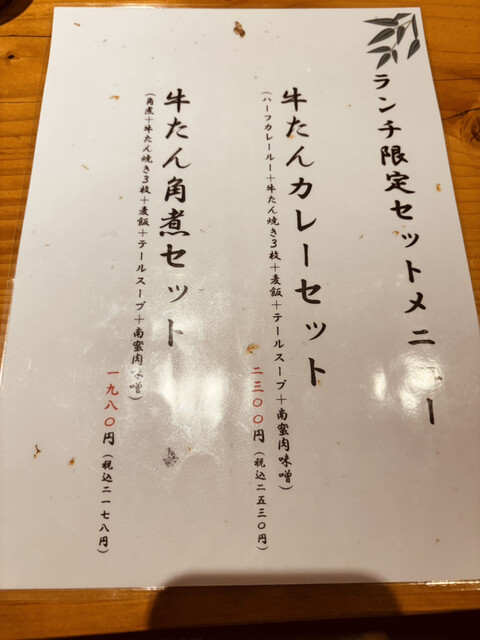 ランチ限定セットメニュー
牛たんカレーセット
(ハーフカレールー+牛たん焼き3枚+麦飯+テールスープ+南蛮肉味噌)
二三〇〇円(税込二五三〇円)
牛たん角煮セット
(角煮+牛たん焼き3枚+麦飯+テールスープ+南蛮肉味噌)
一九八〇円(税込二一七八円)